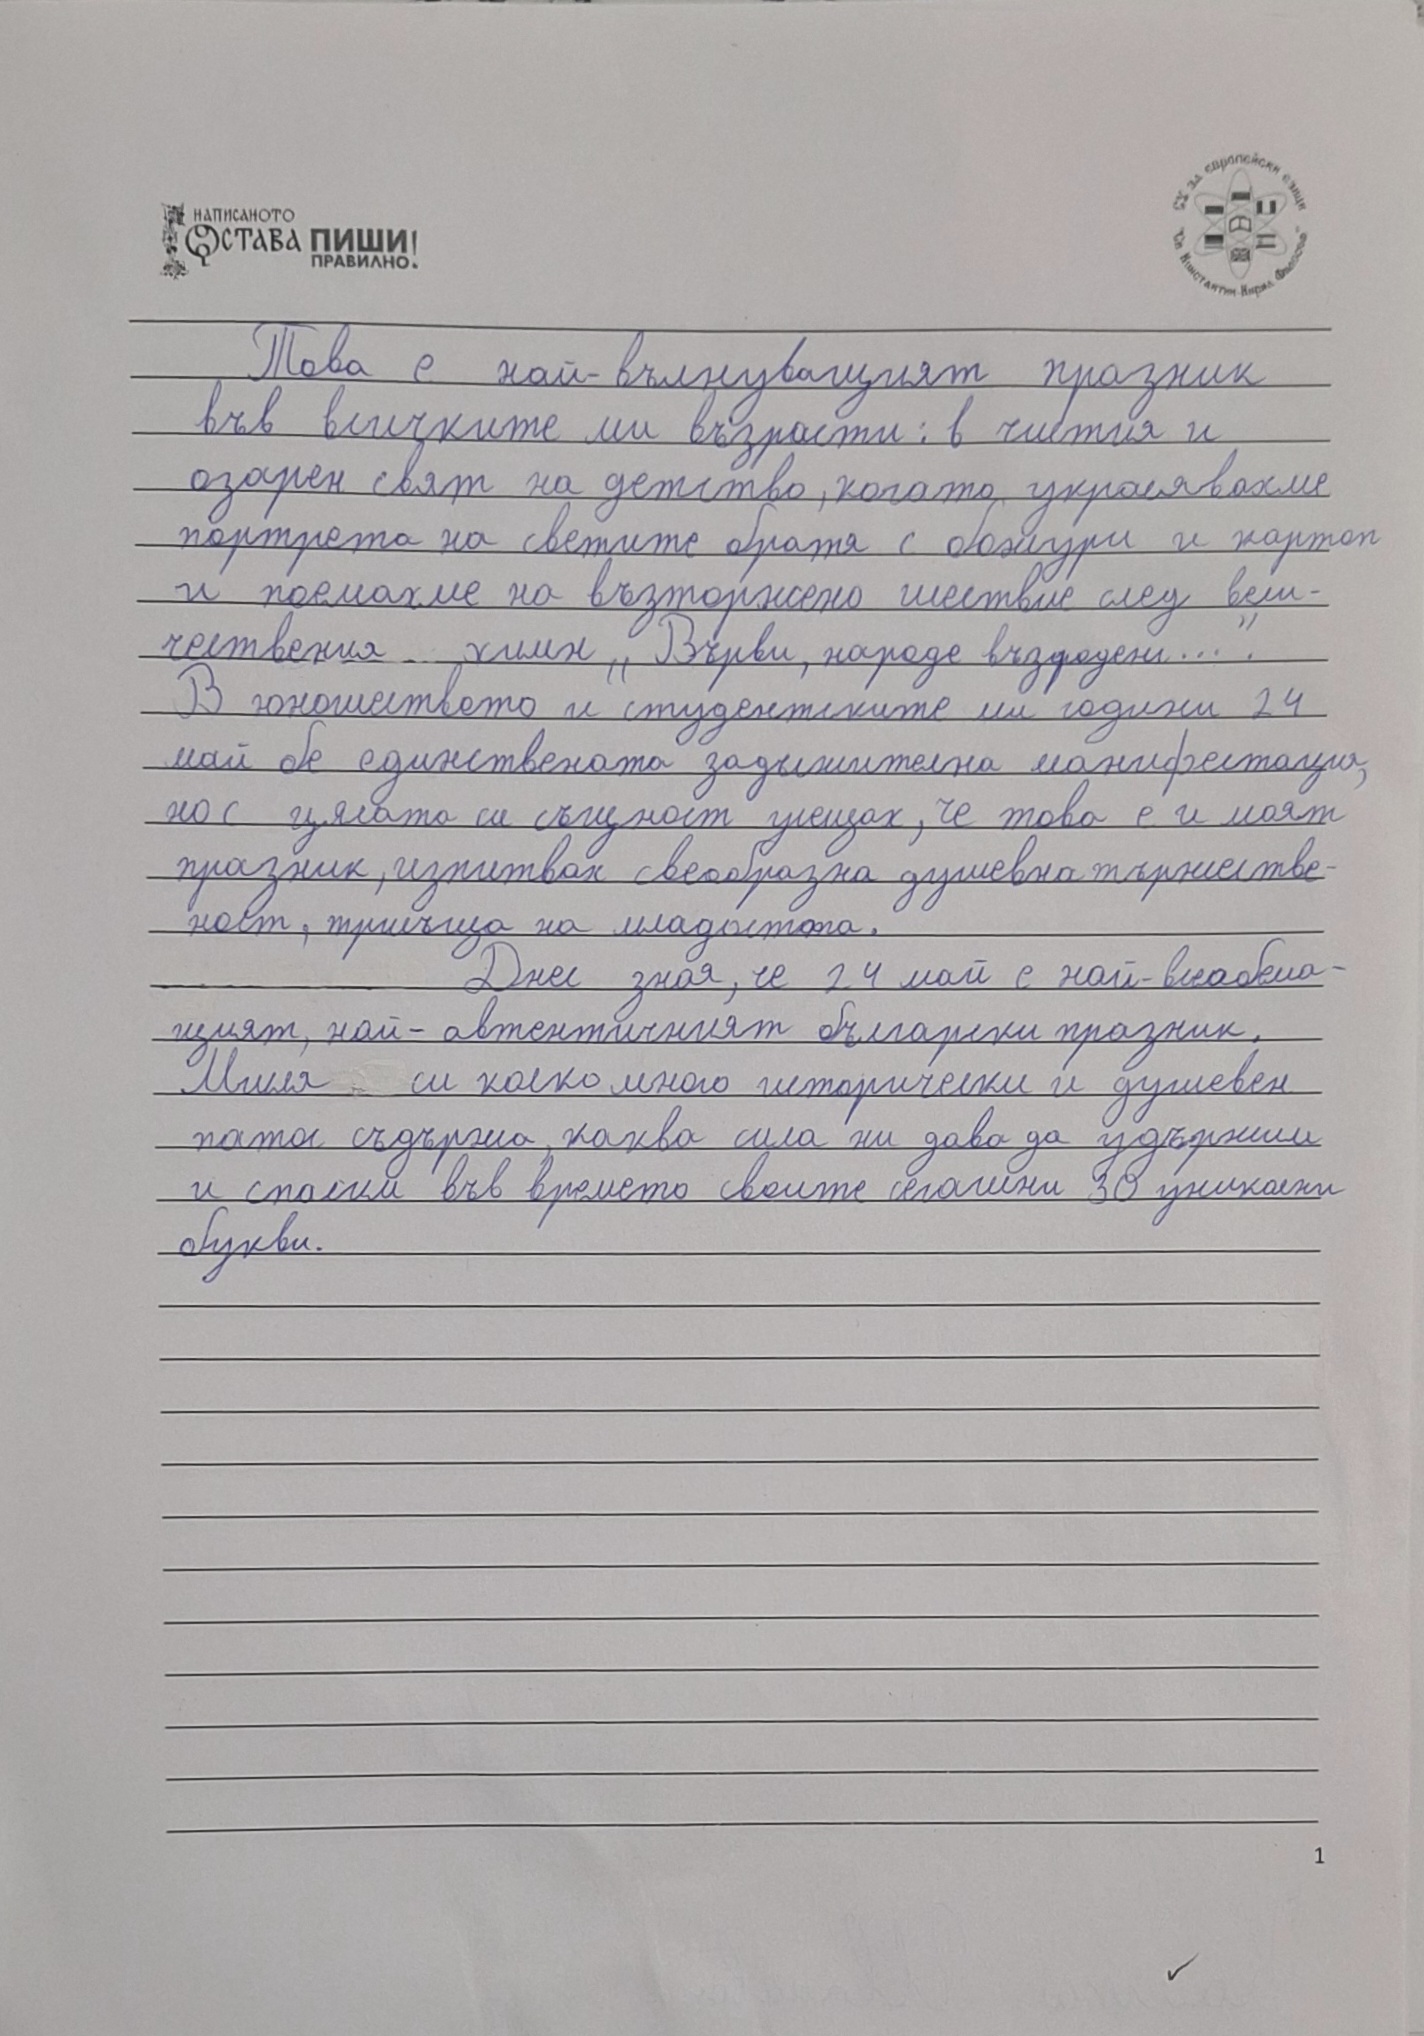 НАПИСАНОТО
ОСТАВА ПИШИ!
ПРАВИЛНО!
СУ за европейски езици
"Св. Константин-Кирил Философ"
Това е най-вълнуващият празник
във всичките ми възрасти: в чистия и
озарен свят на детство, когато украсявахме
портрета на светите братя с божури и картоп
и поемахме на възторжено шествие след вели-
чествения химн „Върви, народе възродени...".
В юношеството и студентските ми години 24
май бе единствената задължителна манифестация,
но с цялата си същност усещах, че това е и моят
празник, изпитвах своеобразна душевна тържестве-
ност, присъща на младостта.
Днес зная, че 24 май е най-всеобема-
щият, най-автентичният български празник.
Мисля си колко много исторически и душевен
патос съдържа, каква сила ни дава да удържим
и спасим във времето своите сегашни 30 уникални
букви.
1